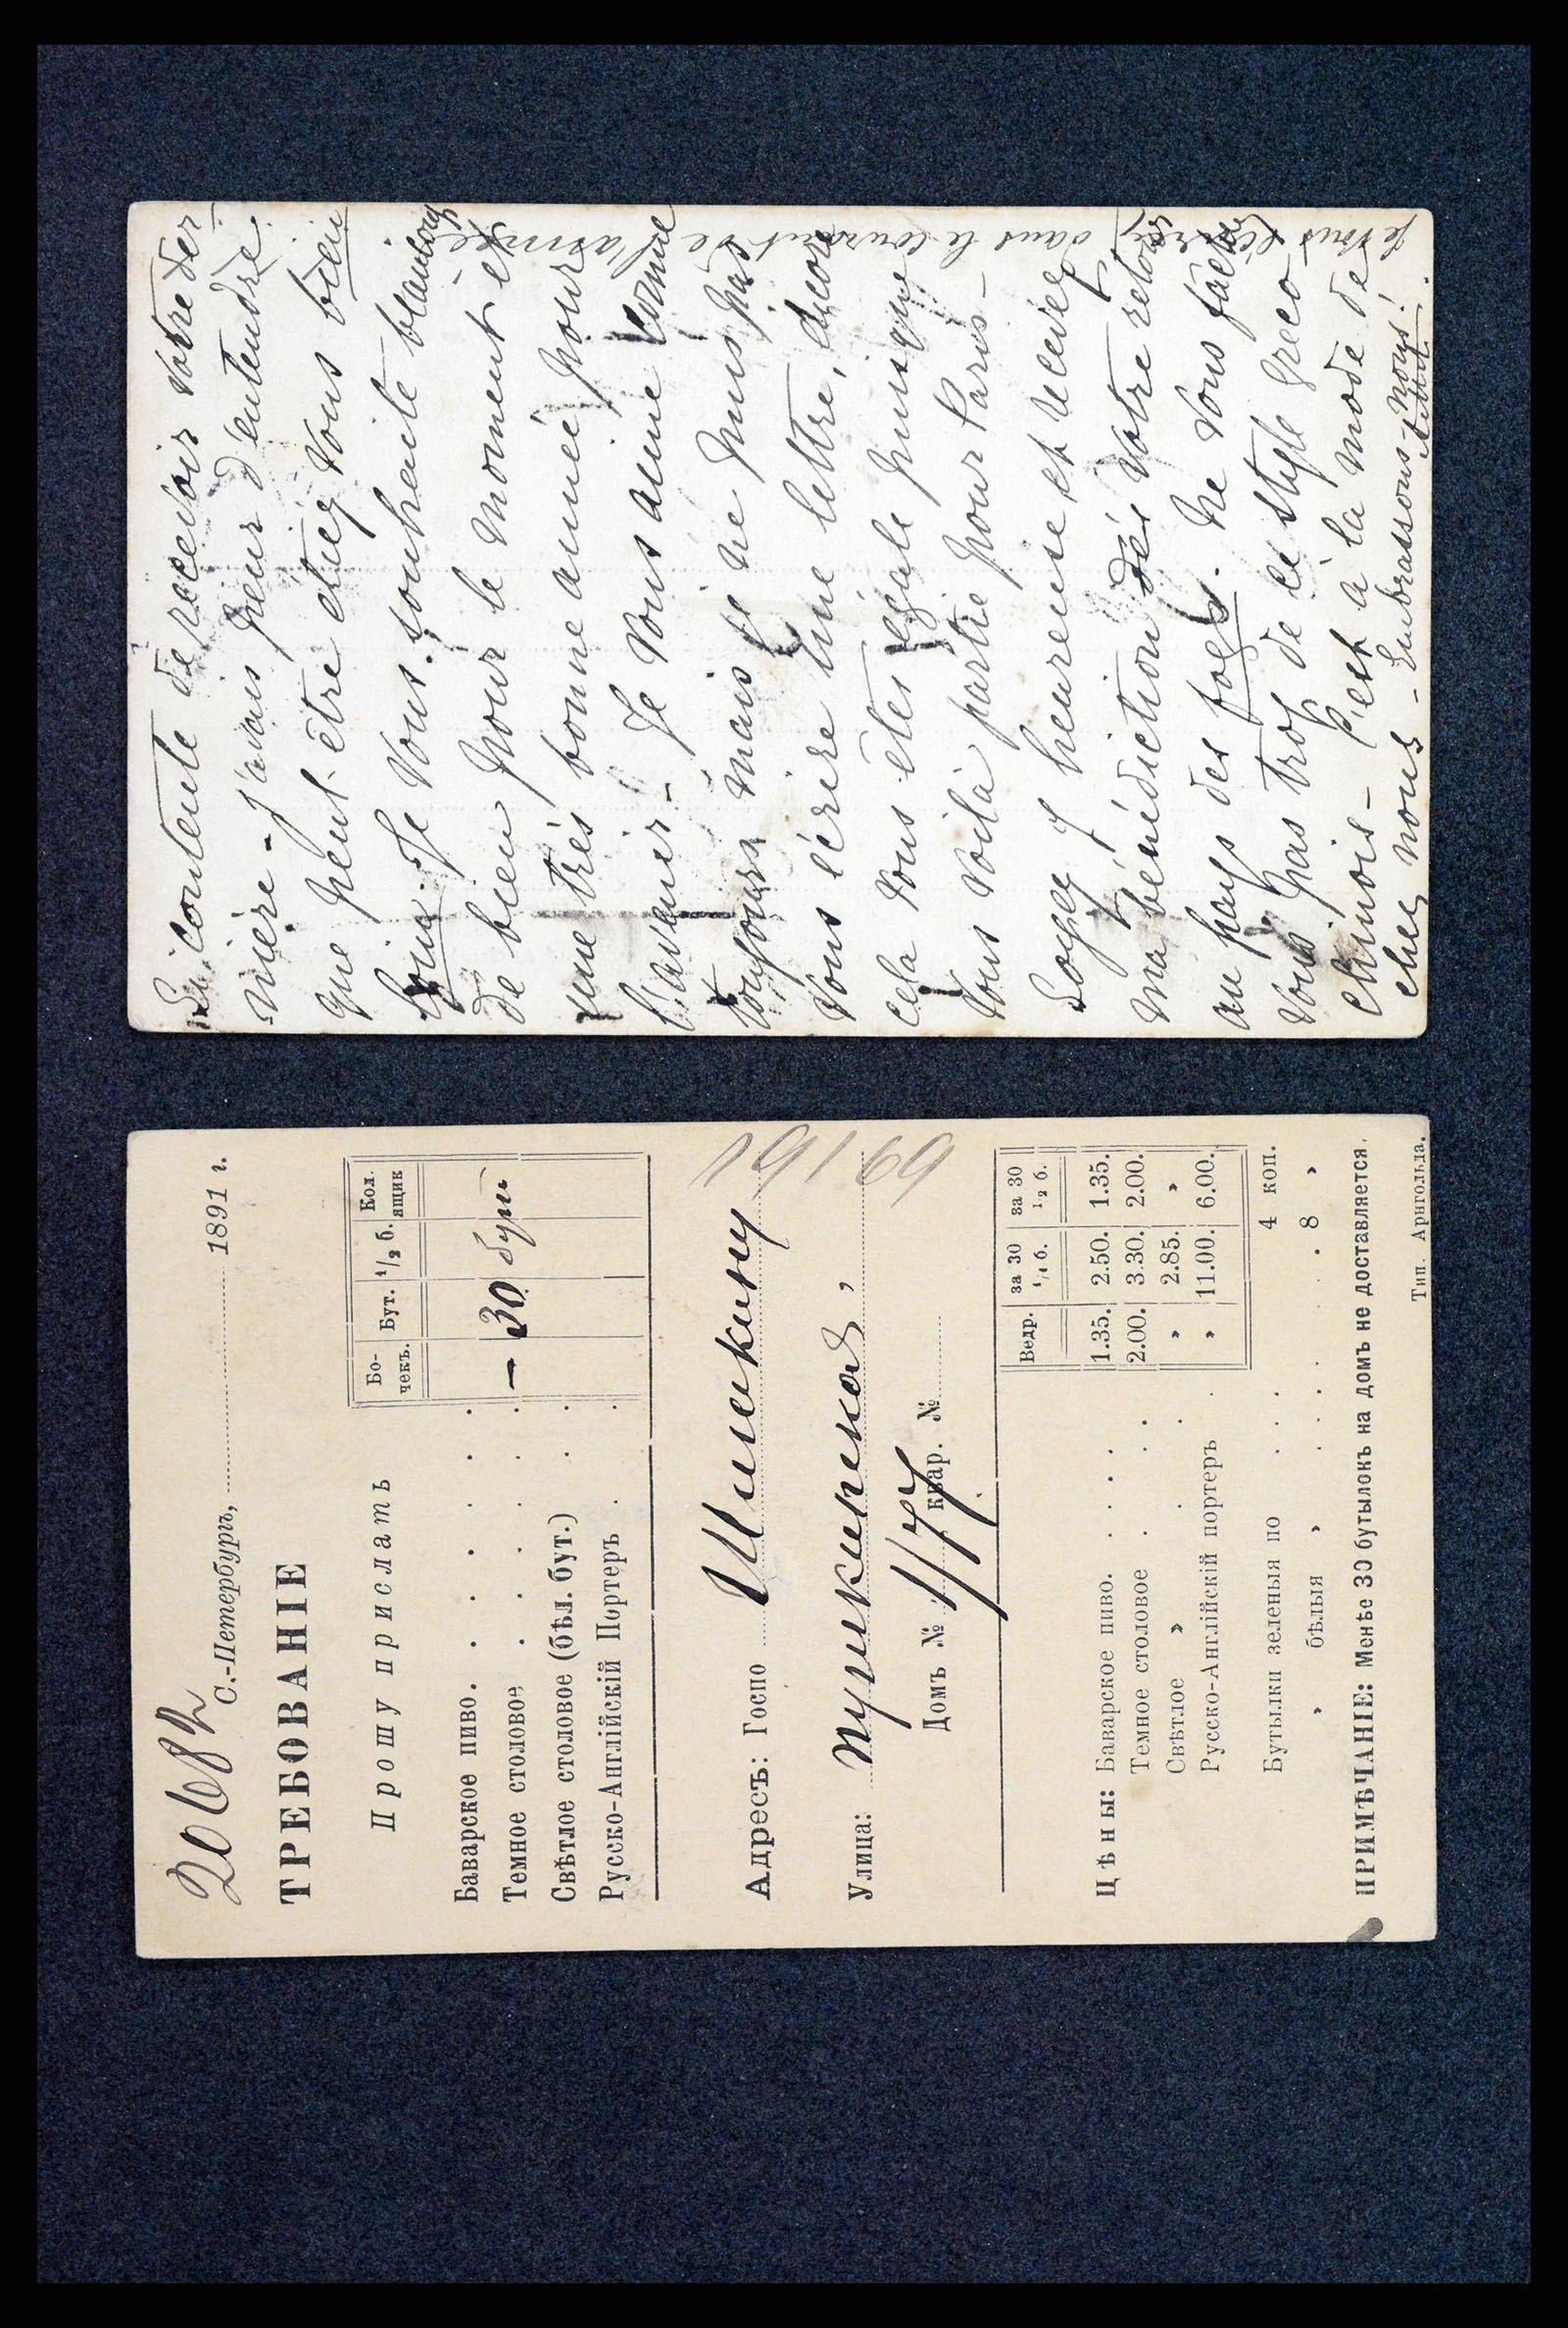 Si contente de recevoir votre der-
nière - J'avais peur d'entendre
que peut-être chez vous bien
Je vous souhaite beaucoup
de bien pour le moment et
une très bonne année pour
l'avenir - Je vous aime comme
toujours mais je ne puis pas
vous écrire une lettre, encore
cela vous est égal puisque
vous voilà partie pour Paris -
Soyez y heureuse et recevez
ma bénédiction dès votre retour
au pays des fogs. Ne vous
vous pas trop de ce style Greco
Chinois - C'est à la mode de
chez nous - Embrassons-nous!
Je vous dans le courant de l'année
20682
С.-Петербургъ, 1891 г.
ТРЕБОВАНІЕ
Прошу прислать
Бо-чекъ. Бут. 1/2 б. Кол. ящик
Баварское пиво.
Темное столовое — 30 бут
Свѣтлое столовое (бѣл. бут.)
Русско-Англійскій Портеръ
19169
Адресъ: Госпо Шишкину
Улица: Пушкинская,
Домъ № 1/77 квар. №
Ведр. за 30 1/1 б. за 30 1/2 б.
Цѣны: Баварское пиво. 1.35. 2.50. 1.35.
Темное столовое 2.00. 3.30. 2.00.
Свѣтлое » » 2.85. »
Русско-Англійскій портеръ » 11.00. 6.00.
Бутылки зеленыя по 4 коп.
» бѣлыя » 8 »
ПРИМѢЧАНІЕ: Менѣе 30 бутылокъ на домъ не доставляется.
Тип. Арнгольда.